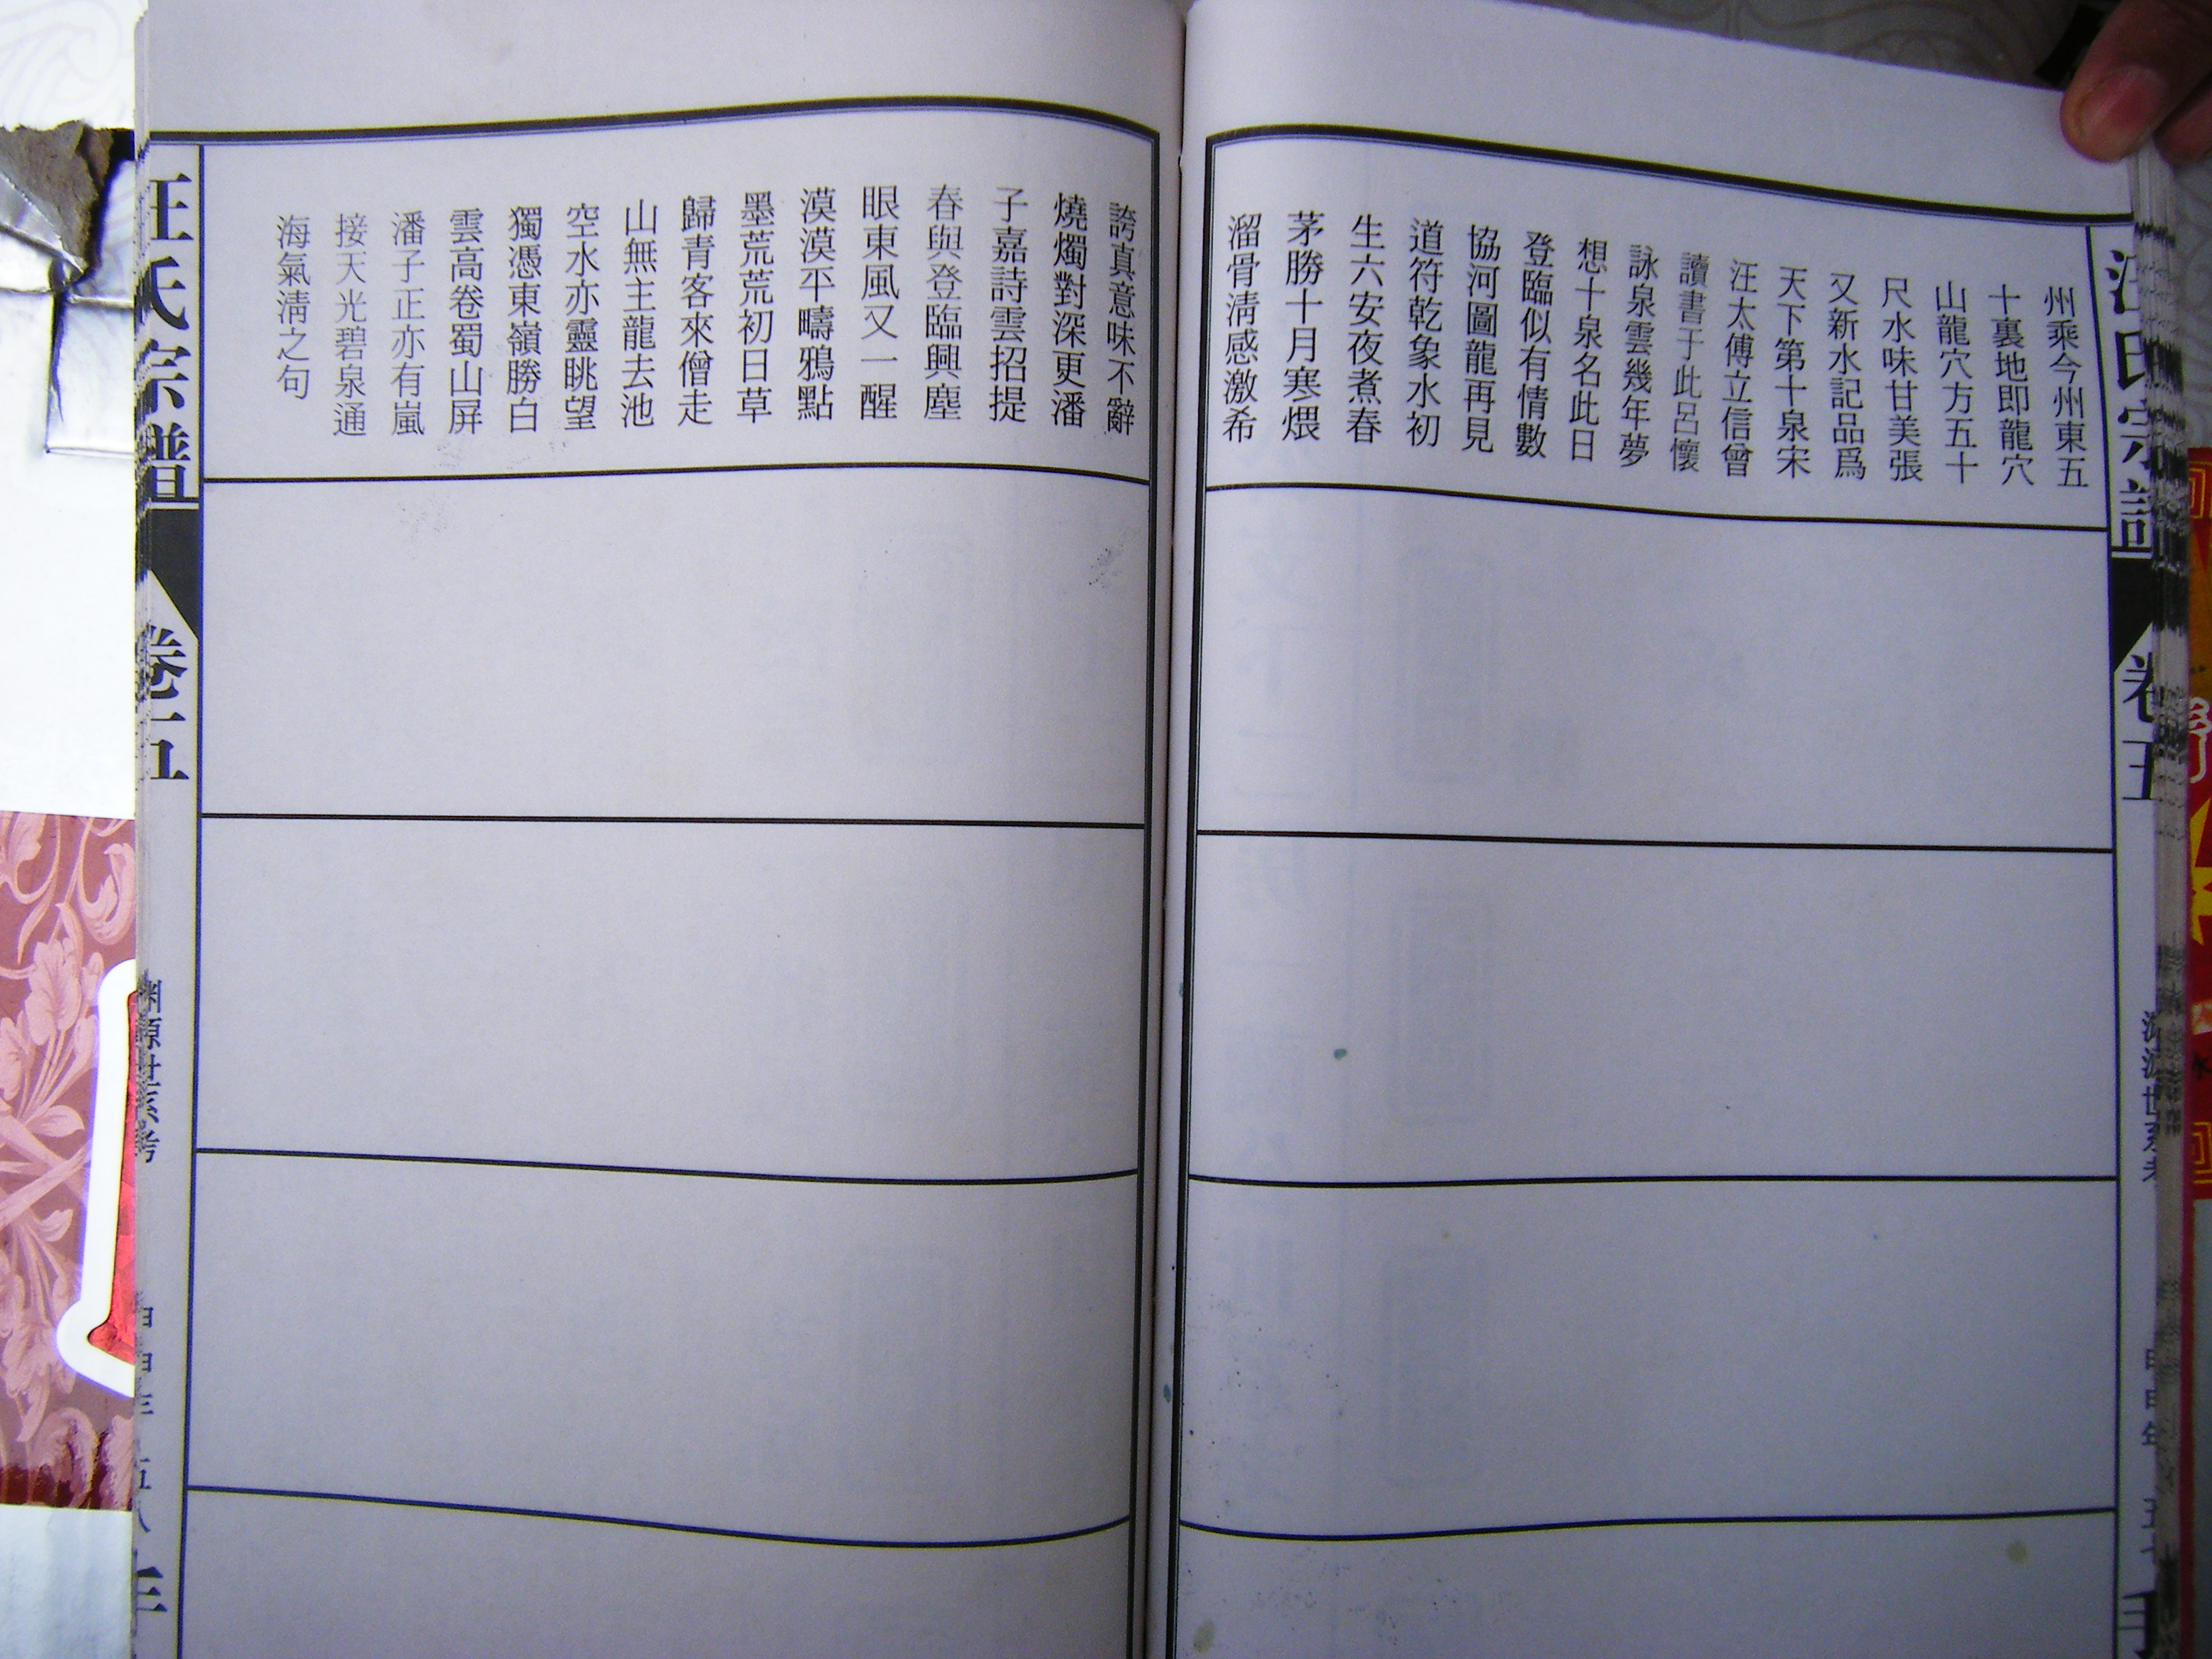 汪氏宗譜
卷五
淵源世系考
州乘今州東五
十裏地即龍穴
山龍穴方五十
尺水味甘美張
又新水記品爲
天下第十泉宋
汪太傅立信曾
讀書于此呂懷
詠泉雲幾年夢
想十泉名此日
登臨似有情數
協河圖龍再見
道符乾象水初
生六安夜煮春
茅勝十月寒煨
溜骨淸感激希
誇真意味不辭
燒燭對深更潘
子嘉詩雲招提
春與登臨興塵
眼東風又一醒
漠漠平疇鴉點
墨荒荒初日草
歸青客來僧走
山無主龍去池
空水亦靈眺望
獨憑東嶺勝白
雲高卷蜀山屏
潘子正亦有嵐
接天光碧泉通
海氣淸之句
汪氏宗譜
卷五
淵源世系考
甲申年
五八